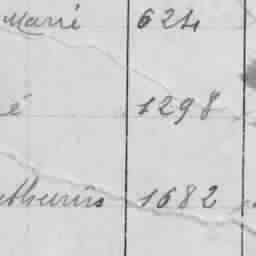 Marié 624
é 1298
thurins 1682